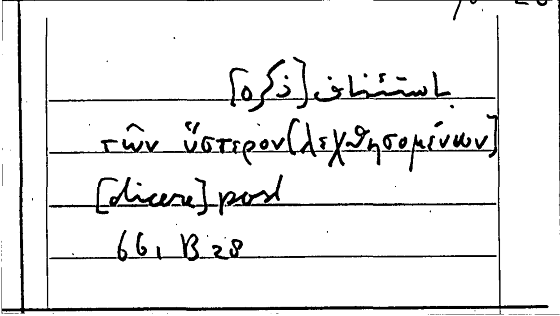 باستئناف [ذكره]
τῶν ὕστερον [λεχθησομένων]
[dicere] post
66, B 28